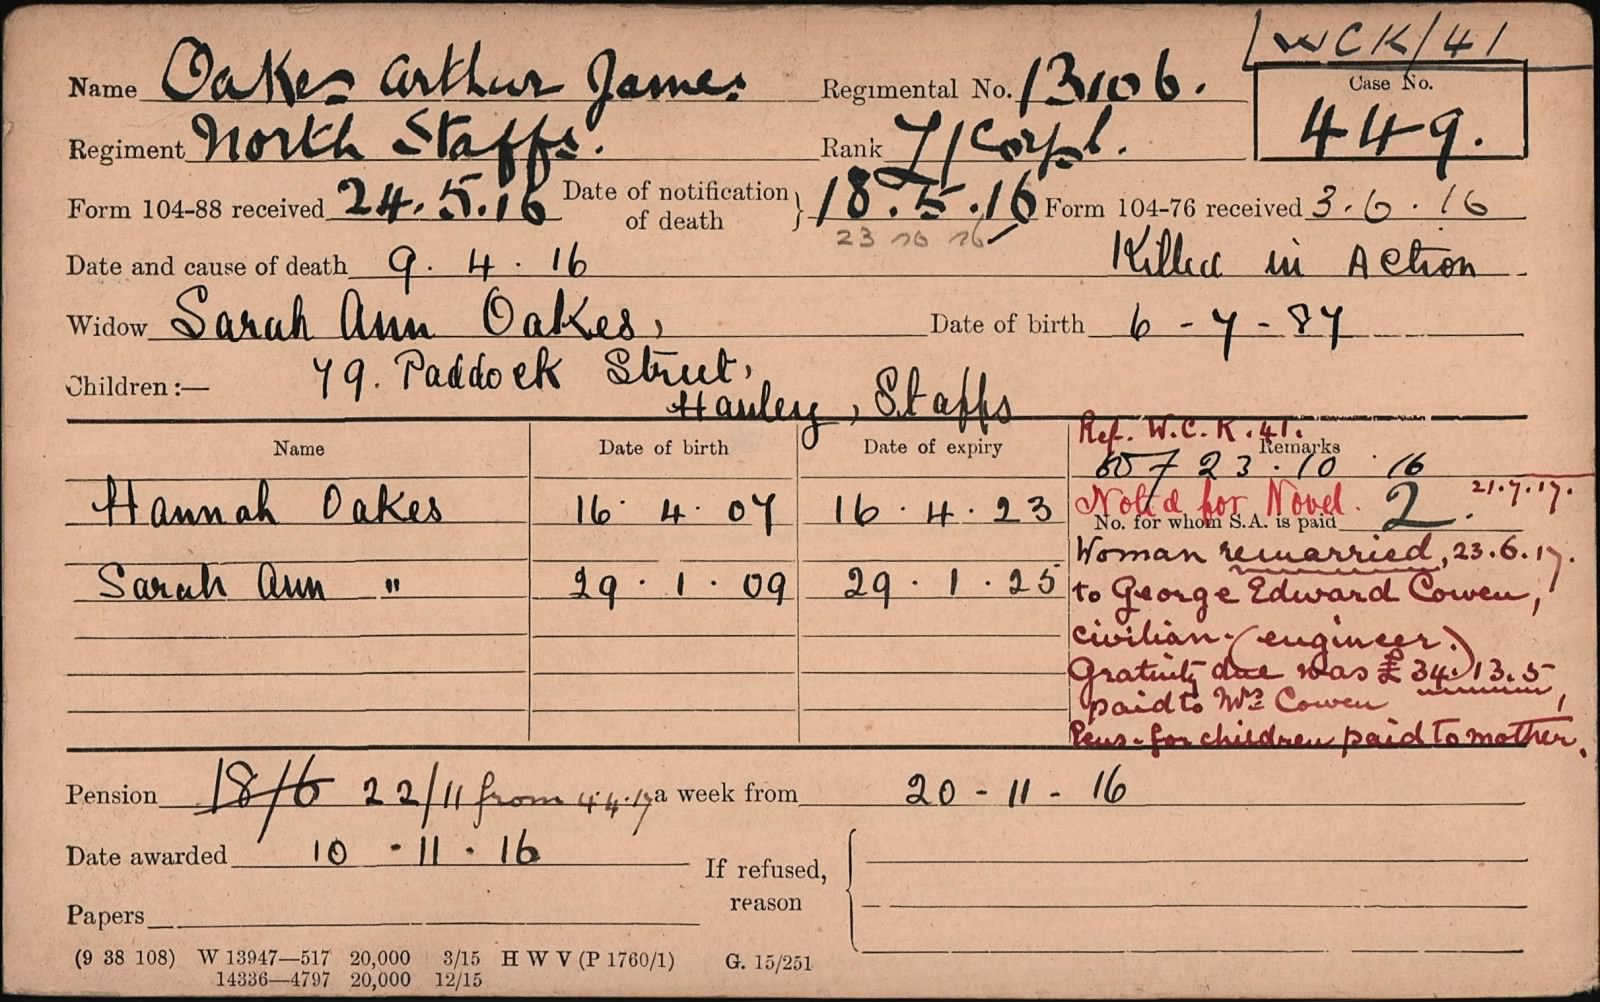 WCK/41
Name Oakes Arthur James Regimental No. 13106. Case No.
Regiment North Staffs. Rank L/Corpl. 449.
Form 104-88 received 24.5.16 Date of notification of death } 18.5.16 Form 104-76 received 3.6.16
23 10 16
Date and cause of death 9.4.16 Killed in Action
Widow Sarah Ann Oakes, Date of birth 6-7-87
Children:— 79. Paddock Street,
Hanley, Staffs
Ref. W.C.K.41.
Name Date of birth Date of expiry Remarks
23.10.16
Hannah Oakes 16.4.07 16.4.23 Not'd for Novel. 21.7.17.
No. for whom S.A. is paid 2.
Woman remarried, 23.6.17.
Sarah Ann " 29.1.09 29.1.25 to George Edward Cowen,
civilian-(engineer.)
Gratuity due was £34.13.5
paid to Mrs Cowen,
Pens. for children paid to mother.
Pension 18/6 22/11 from 4.4.17 a week from 20-11-16
Date awarded 10-11-16 If refused,
reason
Papers
(9 38 108) W 13947—517 20,000 3/15 H W V (P 1760/1) G. 15/251
14336—4797 20,000 12/15